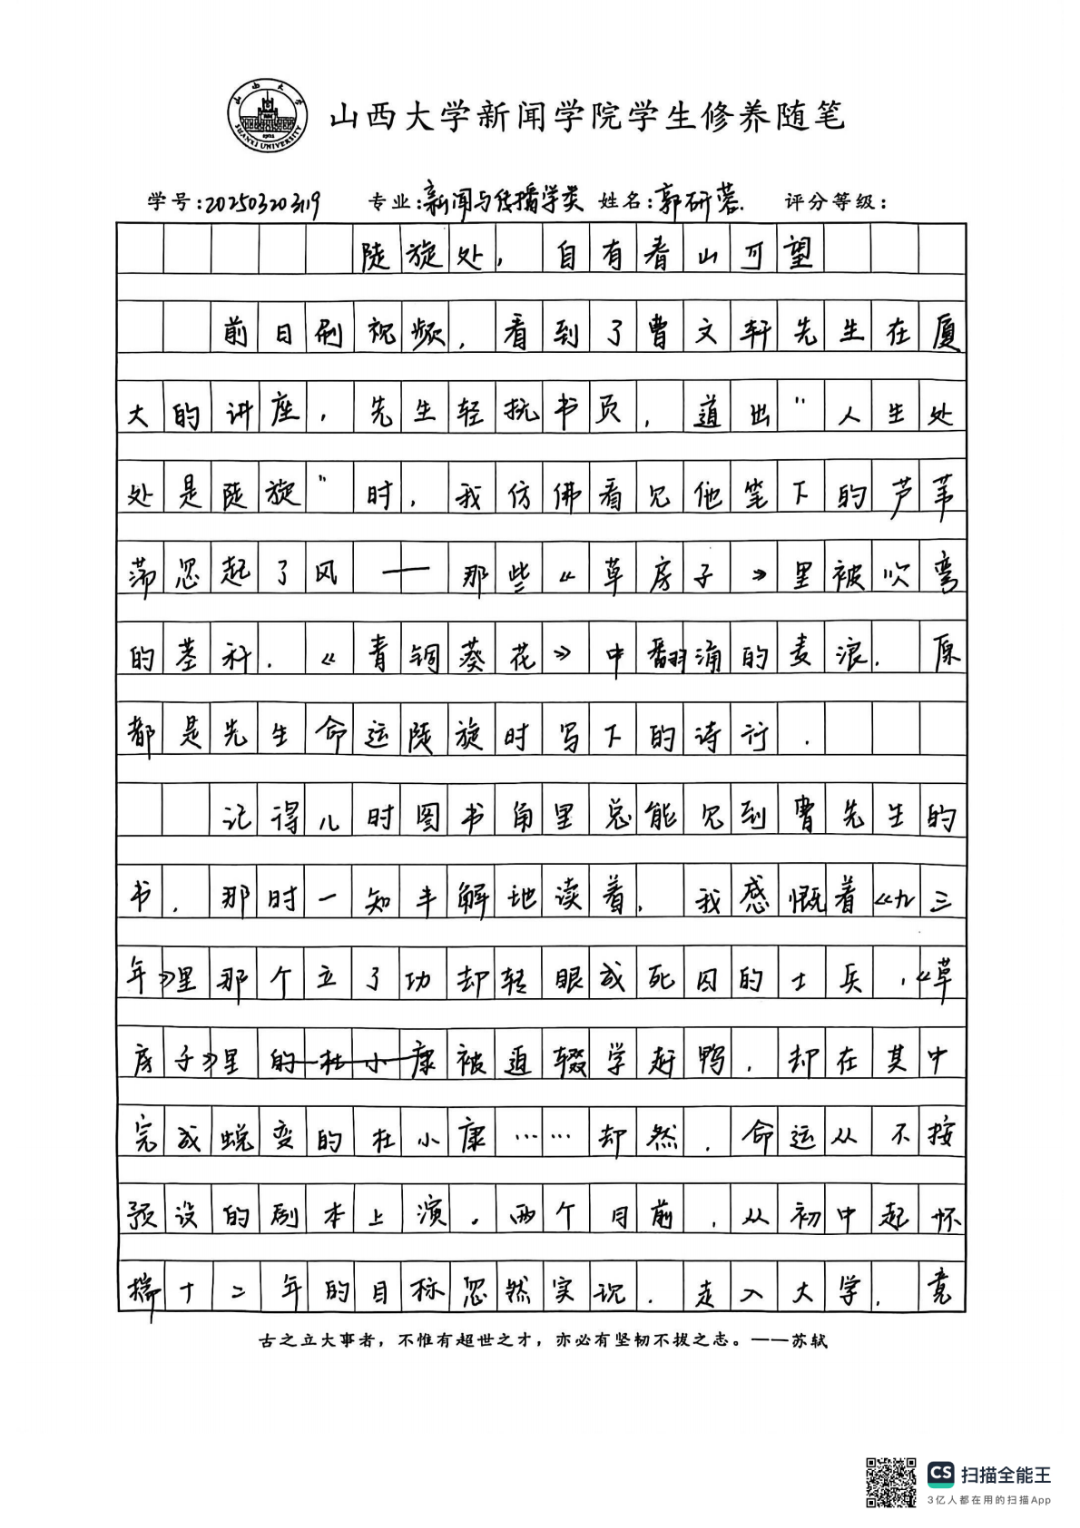 山西大学
SHANXI UNIVERSITY
1902
山西大学新闻学院学生修养随笔
学号:20250320319 专业:新闻与传播学类 姓名:郭研蓉. 评分等级:
陡旋处，自有看山可望
前日刷视频，看到了曹文轩先生在厦
大的讲座，先生轻抚书页，道出"人生处
处是陡旋"时，我仿佛看见他笔下的芦苇
荡忽起了风——那些《草房子》里被吹弯
的茎秆.《青铜葵花》中翻涌的麦浪.原
都是先生命运陡旋时写下的诗行.
记得儿时图书角里总能见到曹先生的
书.那时一知半解地读着.我感慨着《九三
年》里那个立了功却转眼成死囚的士兵，《草
房子》里的杜小康被迫辍学赶鸭，却在其中
完成蜕变的杜小康……却然.命运从不按
预设的剧本上演。两个月前，从初中起怀
揣十二年的目标忽然实现.走入大学.竟
古之立大事者，不惟有超世之才，亦必有坚韧不拔之志。——苏轼
CS 扫描全能王
3亿人都在用的扫描App